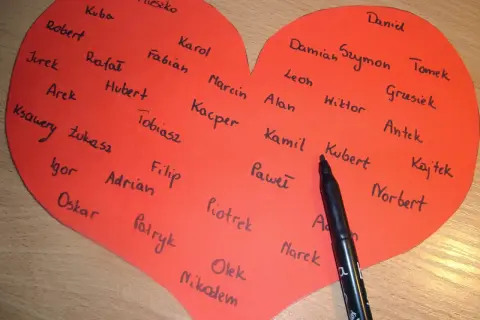 Mieszko
Kuba
Daniel
Robert
Karol
Damian
Szymon
Tomek
Jurek
Rafał
Fabian
Marcin
Leon
Grzesiek
Arek
Hubert
Kacper
Alan
Wiktor
Antek
Ksawery
Łukasz
Tobiasz
Kamil
Kubert
Kajtek
Igor
Adrian
Filip
Paweł
Norbert
Oskar
Patryk
Piotrek
Marek
Olek
Nikodem